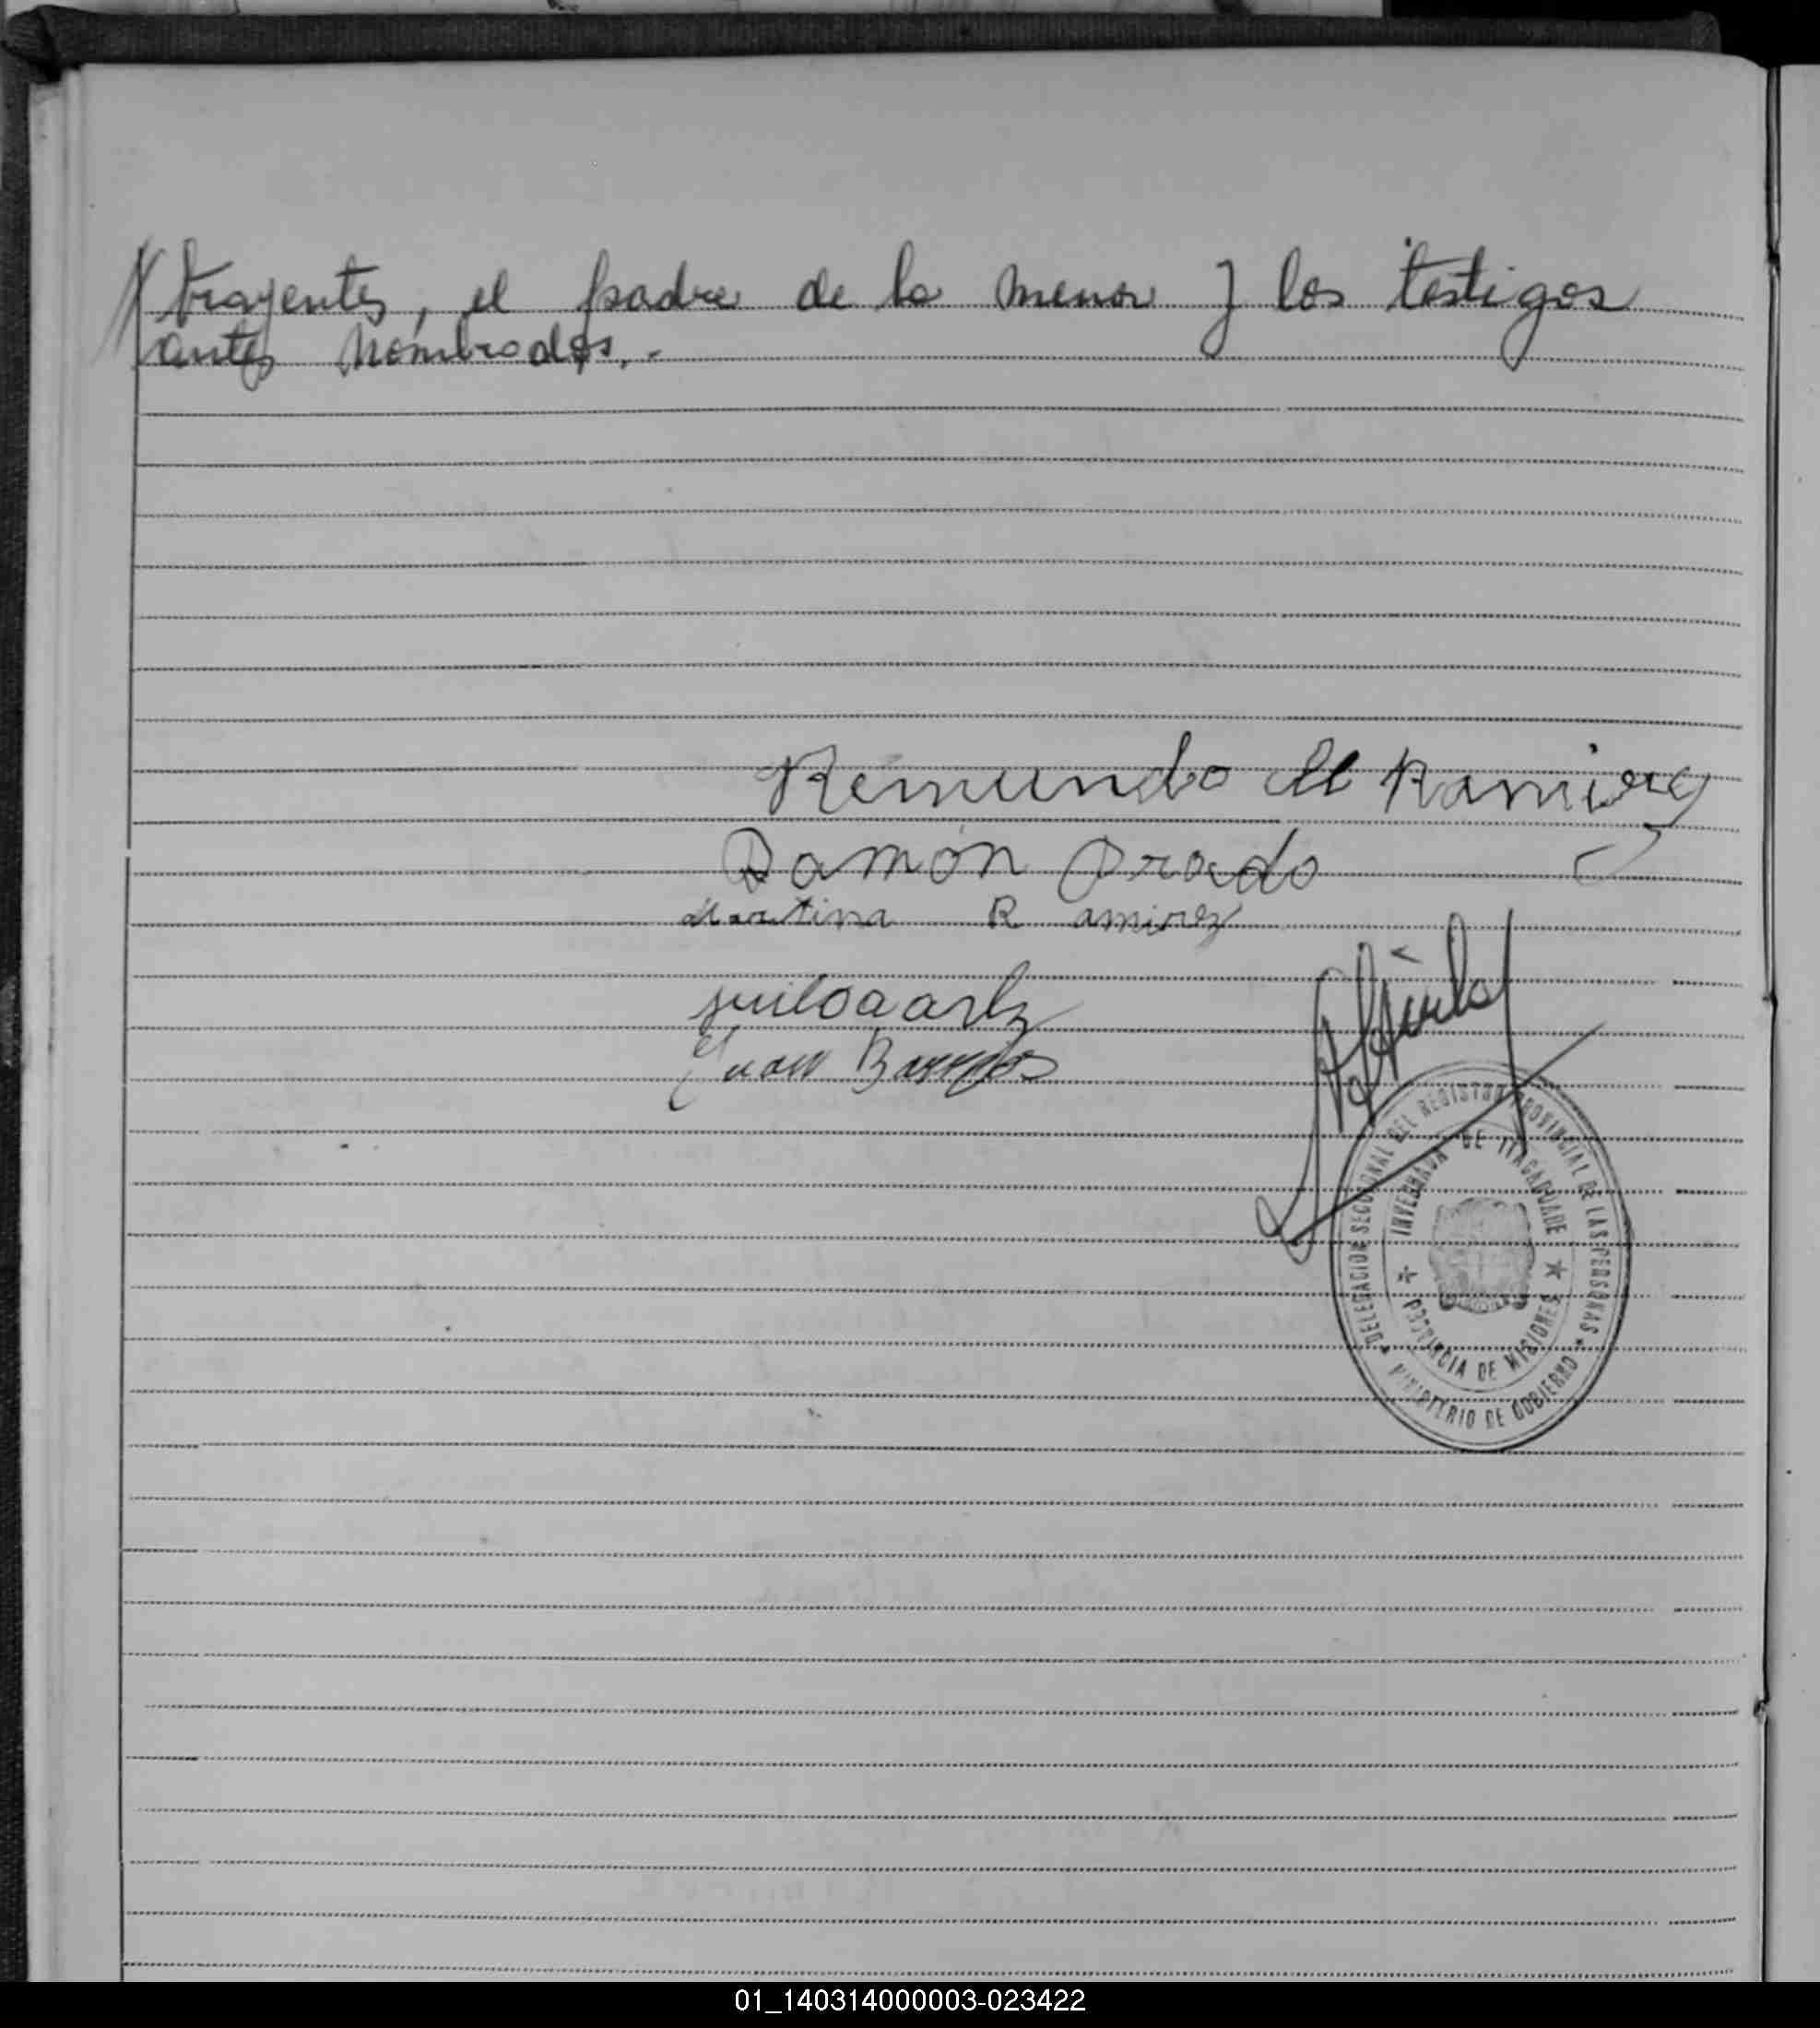 // trayentes, el padre de la menor y los testigos
antes nombrados.-
Remundo el Ramirez
Ramón Prado
Martina R amirez
Juan Barrios
DELEGACION SECCIONAL DEL REGISTRO PROVINCIAL DE LAS PERSONAS
INVERNADA DE ITACARUARE
PROVINCIA DE MISIONES
MINISTERIO DE GOBIERNO
01_140314000003-023422